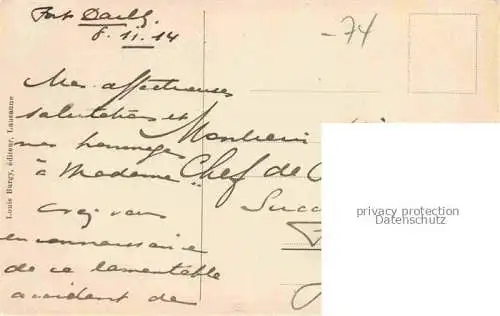 Fort Dailly
8.11.14
-74
Mes affectueuses
salutations et
mes hommages
à Madame.
Avez vous
en connaissance
de ce lamentable
accident de
Monsieur
Chef de
Succ
Louis Burgy, éditeur, Lausanne
privacy protection
Datenschutz